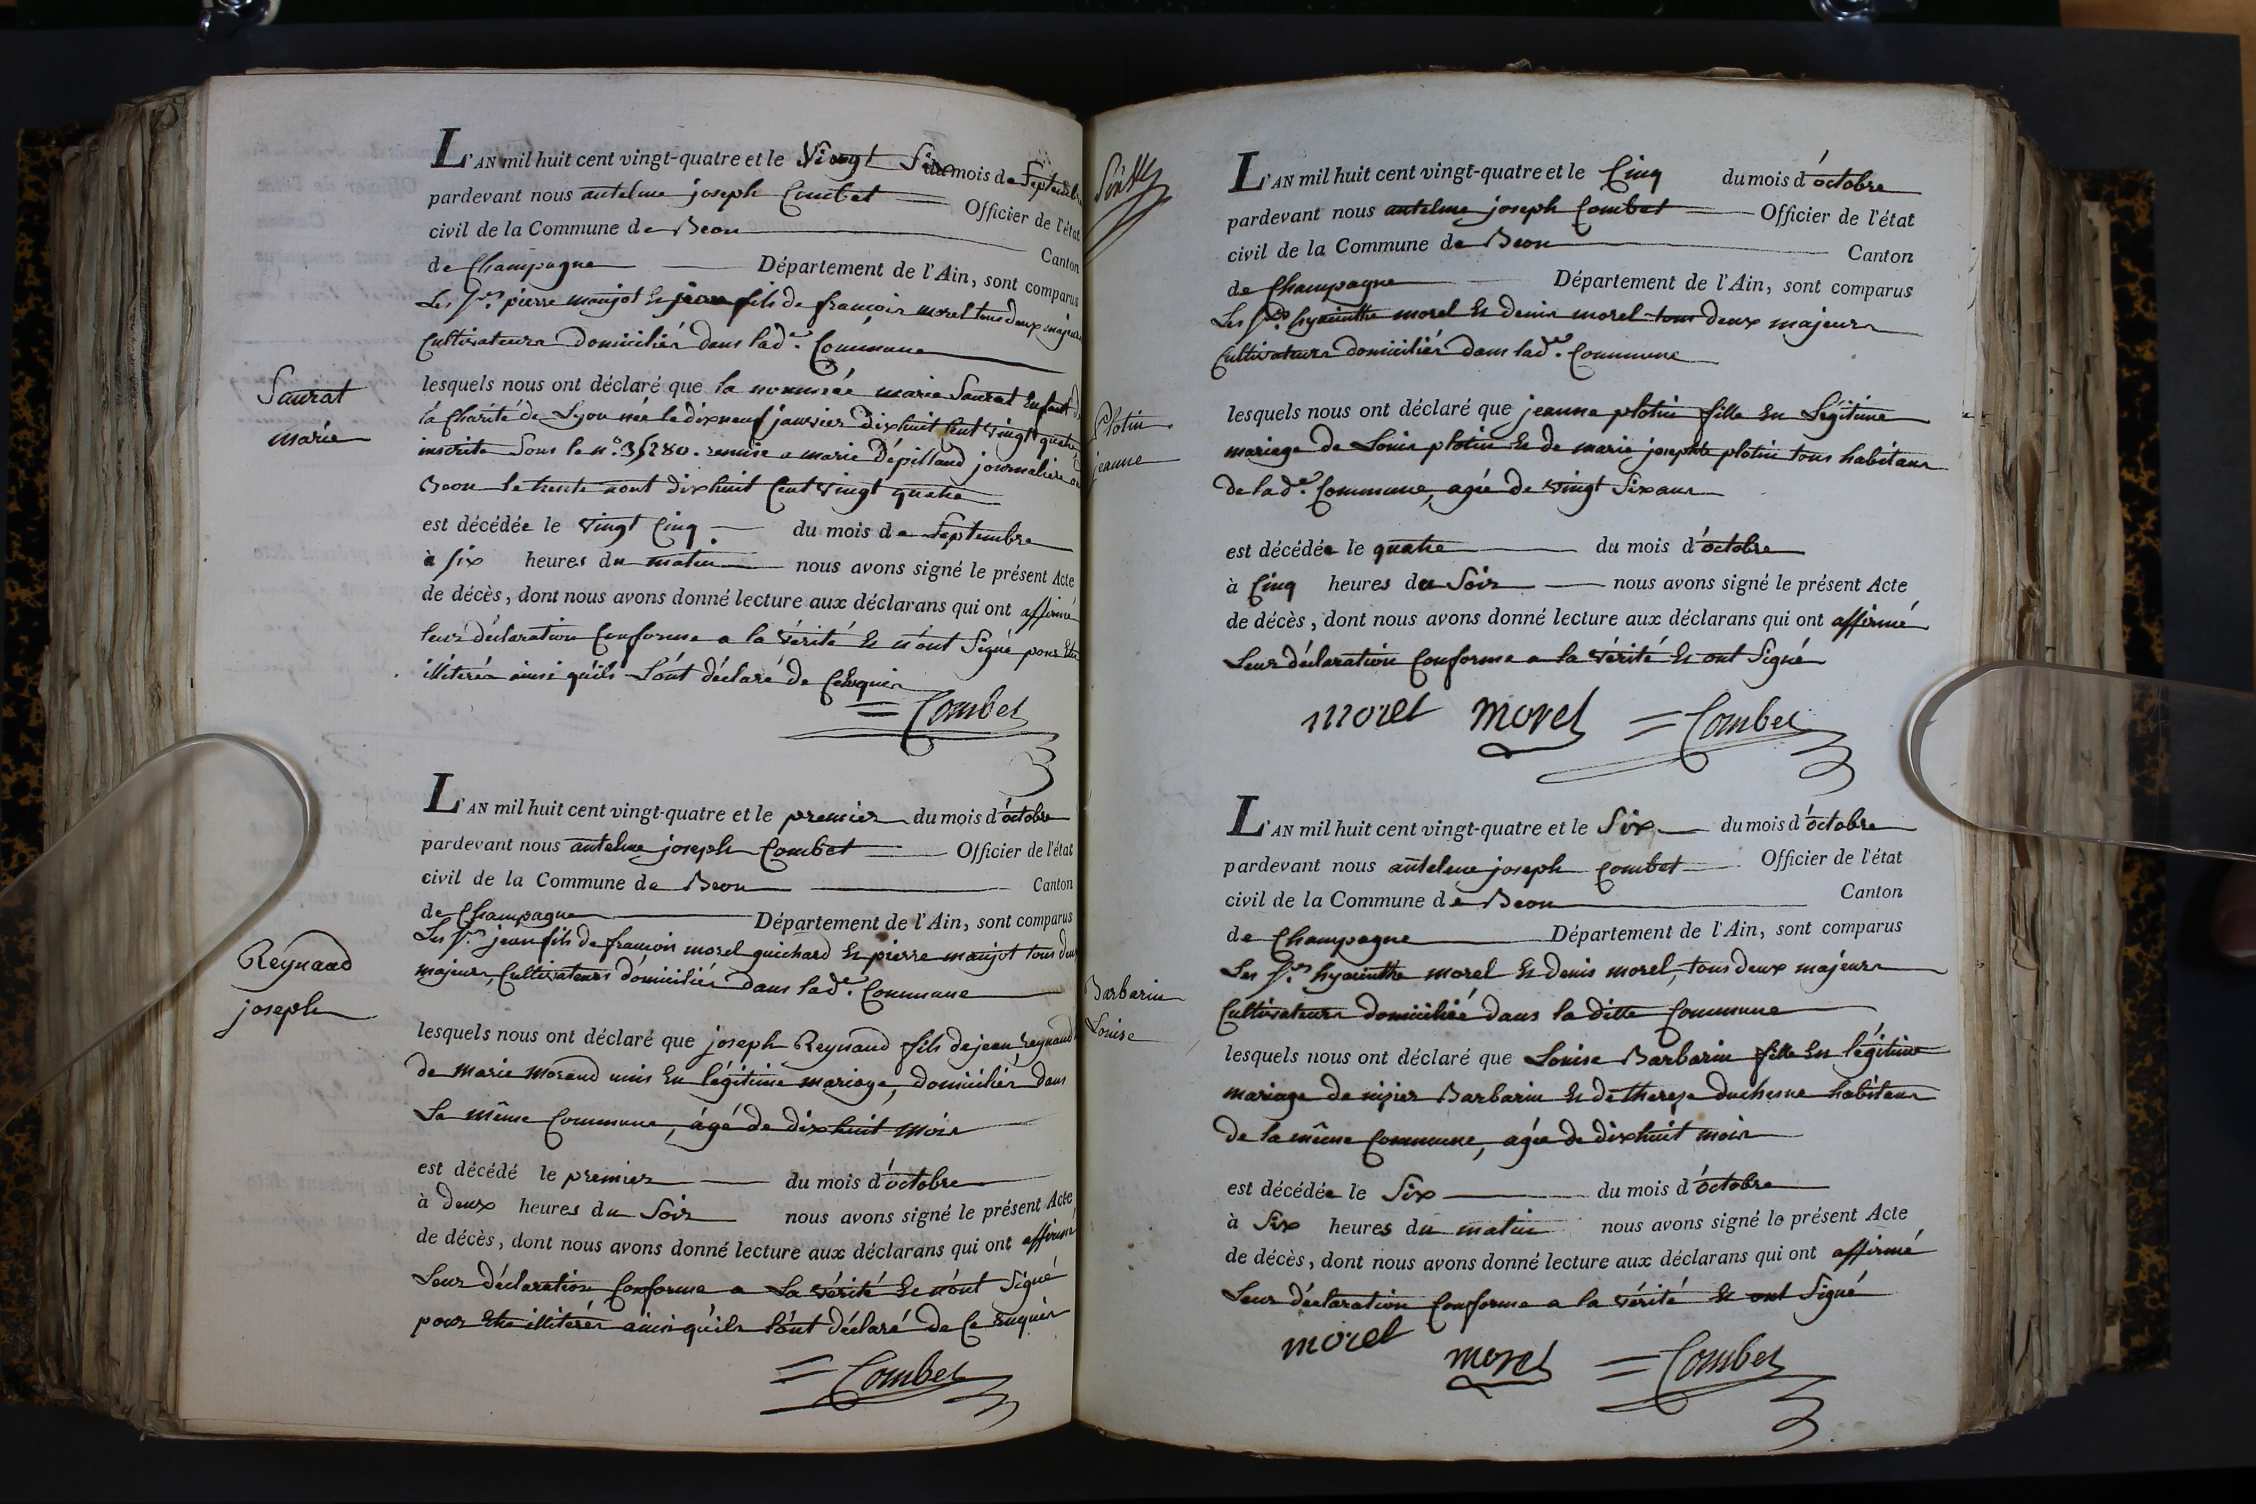 L'AN mil huit cent vingt-quatre et le Vingt Six du mois de Septembre
pardevant nous antelme joseph Combet Officier de l'état
civil de la Commune de Beon Canton
de Champagne Département de l'Ain, sont comparus
Les Srs. pierre maujot et jean fils de francois morel tous deux majeurs
Cultivateurs Domiciliés dans lade. Commune
Saurat
marie
lesquels nous ont déclaré que la nommée marie Saurat Enfant de
la Charité de Lyon née le dixneuf janvier dixhuit Cent vingt quatre
inscrite Sous le n.° 35280. remise a marie Dépilland journaliere
Beon le trente aout dixhuit Cent vingt quatre
est décédée le vingt Cinq. du mois de Septembre
à six heures du matin nous avons signé le présent Acte
de décès, dont nous avons donné lecture aux déclarans qui ont affirmé
leur déclaration Conforme a la vérité et n'ont Signé pour Etre
illitérés ainsi qu'ils L'ont déclaré de Ce Enquis
= Combet
L'AN mil huit cent vingt-quatre et le premier du mois d'octobre
pardevant nous antelme joseph Combet Officier de l'état
civil de la Commune de Beon Canton
de Champagne Département de l'Ain, sont comparus
Les Srs. jean fils de francois morel guichard et pierre maujot tous deux
majeurs, Cultivateurs domiciliés dans lade. Commune
Reynaud
joseph
lesquels nous ont déclaré que joseph Reynaud fils de jean reynaud
de marie morand unis En légitime mariage, domiciliés dans
La même Commune, agé de dixhuit mois
est décédé le premier du mois d'octobre
à deux heures du Soir nous avons signé le présent Acte
de décès, dont nous avons donné lecture aux déclarans qui ont affirmé
Leur déclaration Conforme a La vérité et n'ont Signé
pour Etre illitérés ainsi qu'ils L'ont déclaré de Ce Enquis
= Combet
L'AN mil huit cent vingt-quatre et le Cinq du mois d'octobre
pardevant nous antelme joseph Combet Officier de l'état
civil de la Commune de Beon Canton
de Champagne Département de l'Ain, sont comparus
Les Srs. hyacinthe morel et denis morel tous deux majeurs
Cultivateurs domiciliés dans lade. Commune
Plotin
jeanne
lesquels nous ont déclaré que jeanne plotin fille En Légitime
mariage de Louis plotin et de marie josephte plotin tous habitans
de lade. Commune, agée de vingt Six ans
est décédée le quatre du mois d'octobre
à Cinq heures du Soir nous avons signé le présent Acte
de décès, dont nous avons donné lecture aux déclarans qui ont affirmé
Leur déclaration Conforme a la vérité et ont Signé
morel morel = Combet
L'AN mil huit cent vingt-quatre et le Six du mois d'octobre
pardevant nous antelme joseph Combet Officier de l'état
civil de la Commune de Beon Canton
de Champagne Département de l'Ain, sont comparus
Les Srs. hyacinthe morel et denis morel, tous deux majeurs
Cultivateurs domiciliés dans la ditte Commune
Barbarin
Louise
lesquels nous ont déclaré que Louise Barbarin fille En légitime
mariage de nisier Barbarin et de therese duchesne habitans
de la même Commune, agée de dixhuit mois
est décédée le Six du mois d'octobre
à Six heures du matin nous avons signé le présent Acte
de décès, dont nous avons donné lecture aux déclarans qui ont affirmé
Leur déclaration Conforme a la vérité et ont Signé
morel morel = Combet